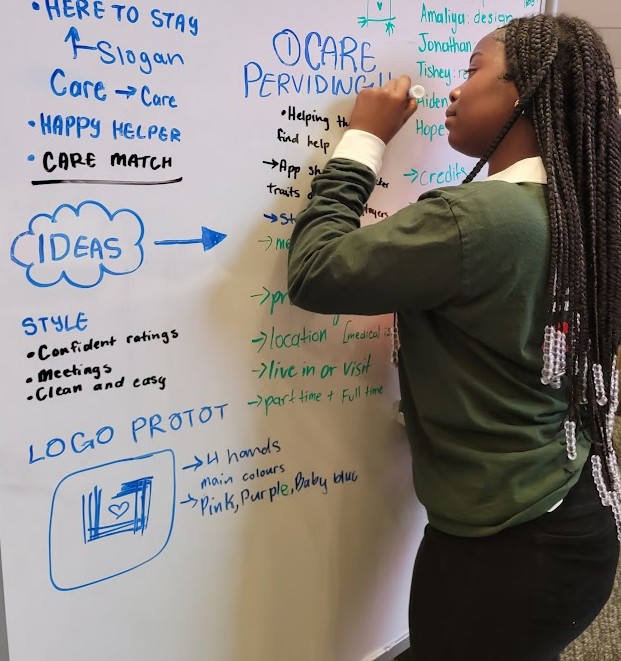 •HERE TO STAY
Slogan
Care → Care
•HAPPY HELPER
• CARE MATCH
IDEAS
STYLE
•Confident ratings
•Meetings
•Clean and easy
LOGO PROTOT
→4 hands
main colours
→Pink, Purple, Baby blue
① CARE
PERVIDING
•Helping
find help
→App
traits
→location [medical
→live in or visit
→part time + Full time
Amaliya: design
Jonathan
Tishey:
Aiden
Hope
→credits